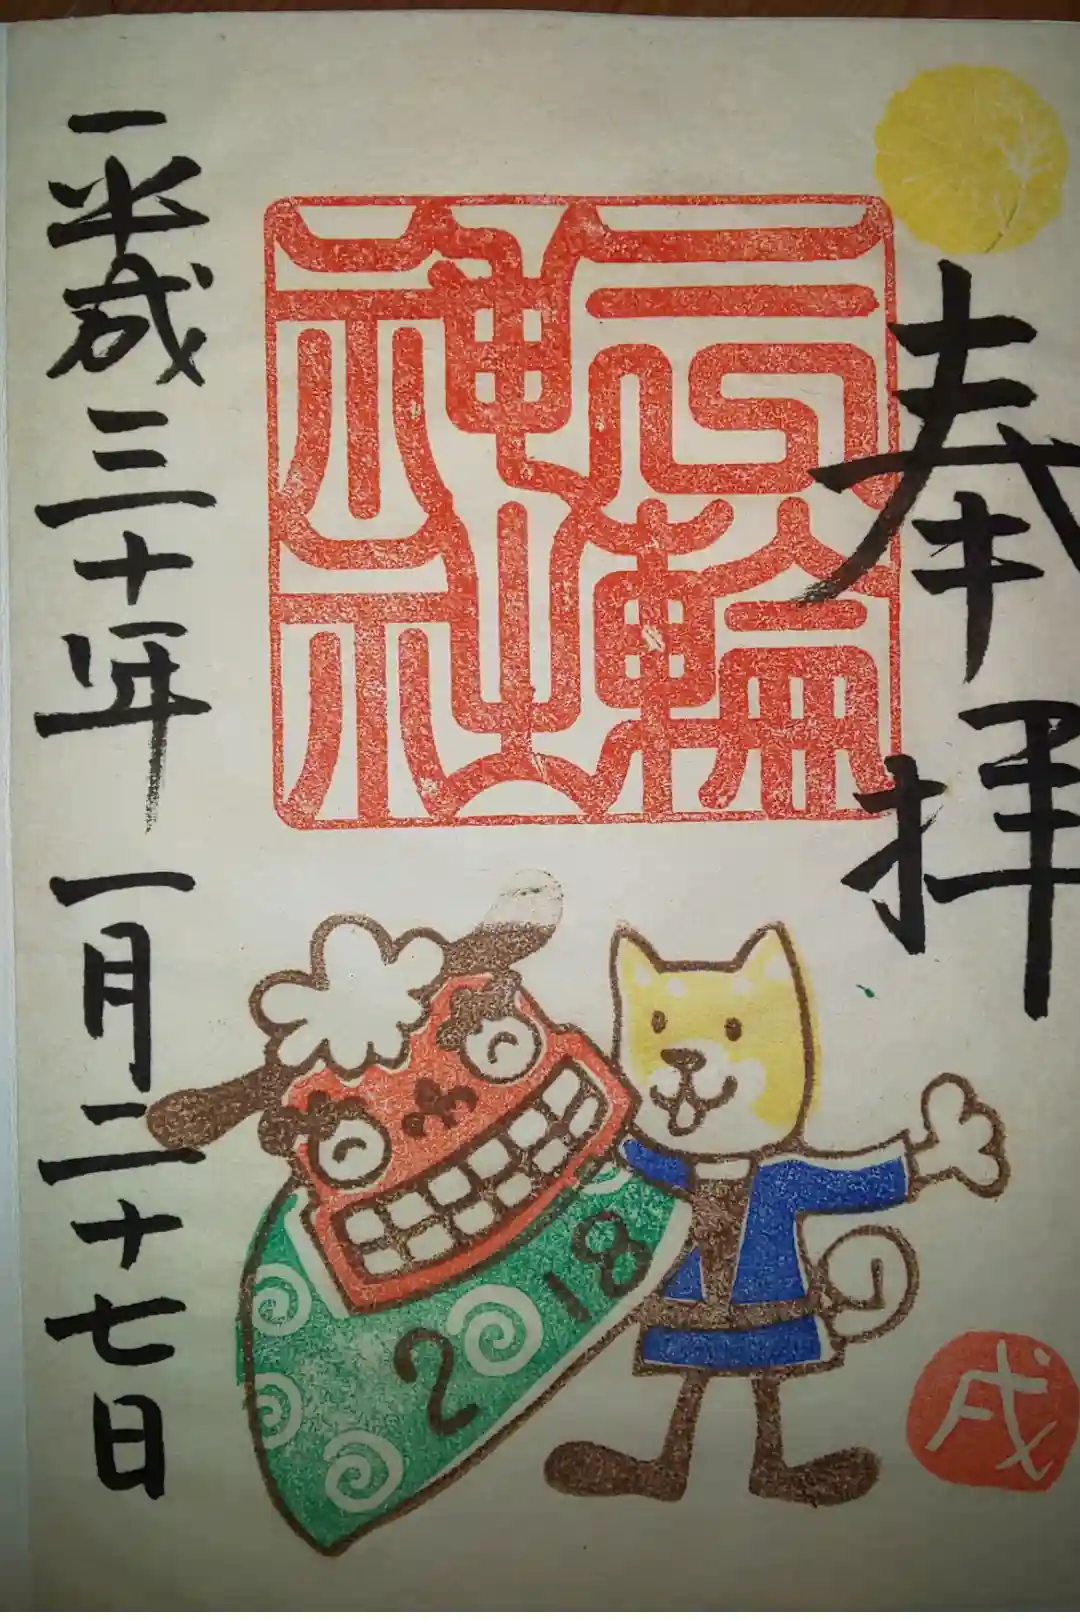 奉拝
三輪
神社
平成三十年一月二十七日
2 18
戌